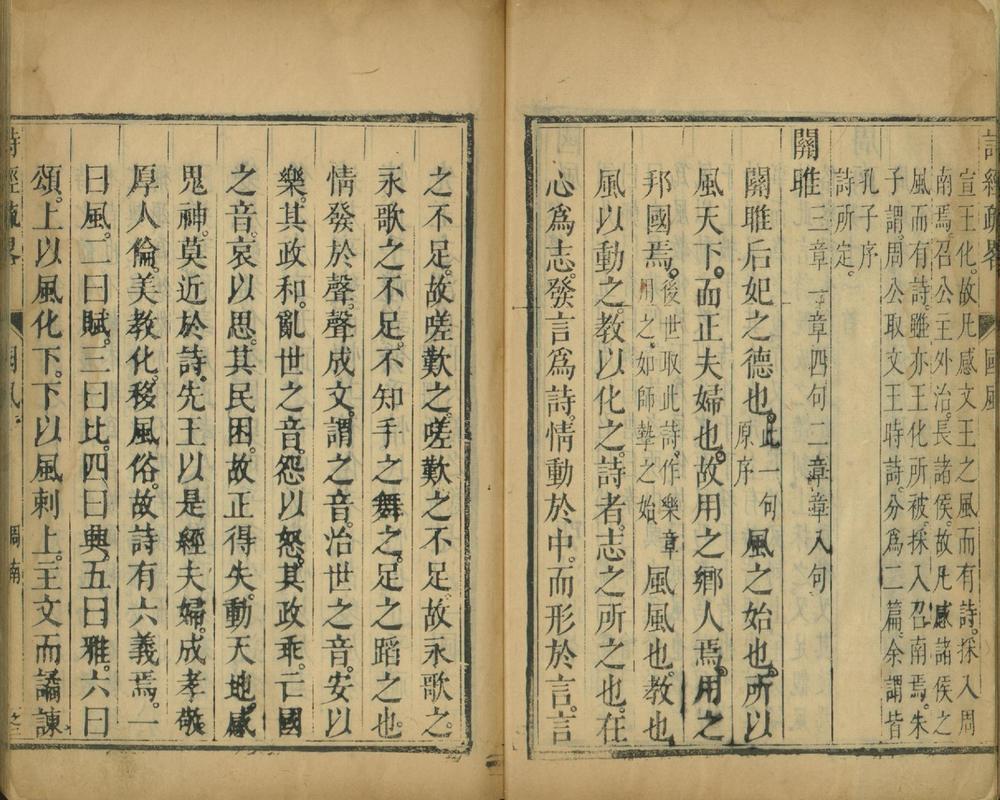 詩經疏畧 國風
宣王化。故凡感文王之風而有詩。採入周
南焉。召公主外治。長諸侯。故凡感諸侯之
風而有詩。雖亦王化所被。採入召南焉。朱
子謂。周公取文王時詩。分爲二篇。余謂皆
孔子序
詩所定。
關雎三章一章四句二章章八句
關雎后妃之德也。此一句原序風之始也。所以
風天下。而正夫婦也。故用之鄉人焉。用之
邦國焉。後世取此詩。作樂章用之。如師摯之始風風也。教也
風以動之。教以化之。詩者。志之所之也。在
心爲志。發言爲詩。情動於中。而形於言。言
之不足。故嗟歎之。嗟歎之不足。故永歌之。
永歌之不足。不知手之舞之。足之蹈之也
情發於聲。聲成文。謂之音。治世之音。安以
樂。其政和。亂世之音。怨以怒。其政乖。亡國
之音。哀以思。其民困。故正得失。動天地。感
鬼神。莫近於詩。先王以是經夫婦。成孝敬。
厚人倫。美教化。移風俗。故詩有六義焉。一
曰風。二曰賦。三曰比。四曰興。五曰雅。六曰
頌。上以風化下。下以風刺上。主文而譎諫
詩經疏畧 國風 周南